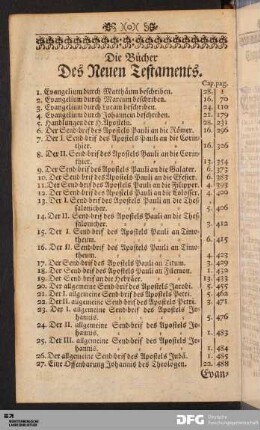 Die Bücher
Des Neuen Testaments.
Cap. pag.
1. Evangelium durch Matthäum beschriben. 28. 1
2. Evangelium durch Marcum beschriben. 16. 70
3. Evangelium durch Lucam beschriben. 24. 110
4. Evangelium durch Johannem beschriben. 21. 179
5. Handlungen der H. Aposteln. 28. 231
6. Der Send-brif des Apostels Pauli an die Römer. 16. 296
7. Der I. Send-brif des Apostels Pauli an die Corin-
thier. 16. 326
8. Der II. Send-brif des Apostels Pauli an die Corin-
thier. 13. 354
9. Der Send-brif des Apostels Pauli an die Galater. 6. 372
10. Der Send-brif des Apostels Pauli an die Efeser. 6. 383
11. Der Send-brif des Apostels Pauli an die Filipper. 4. 393
12. Der Send-brif des Apostels Pauli an die Colosser. 4. 400
13. Der I. Send-brif des Apostels Pauli an die Thes-
salonicher. 5. 406
14. Der II. Send-brif des Apostels Pauli an die Thes-
salonicher. 3. 412
15. Der I. Send-brif des Apostels Pauli an Timo-
theum. 6. 415
16. Der II. Send-brif des Apostels Pauli an Timo-
theum. 4. 423
17. Der Send-brif des Apostels Pauli an Titum. 3. 429
18. Der Send-brif des Apostels Pauli an Filemon. 1. 432
19. Der Send-brif an die Hebräer. 13. 433
20. Der allgemeine Send-brif des Apostels Jacobi. 5. 455
21. Der I. allgemeine Send-brif des Apostels Petri. 5. 462
22. Der II. allgemeine Send-brif des Apostels Petri. 3. 471
23. Der I. allgemeine Send-brif des Apostels Jo-
hannis. 5. 476
24. Der II. allgemeine Send-brif des Apostels Jo-
hannis. 1. 483
25. Der III. allgemeine Send-brif des Apostels Jo-
hannis. 1. 484
26. Der allgemeine Send-brif des Apostels Judä. 1. 485
27. Die Offenbarung Johannis des Theologen. 22. 488
Evan-
DFG Deutsche
Forschungsgemeinschaft